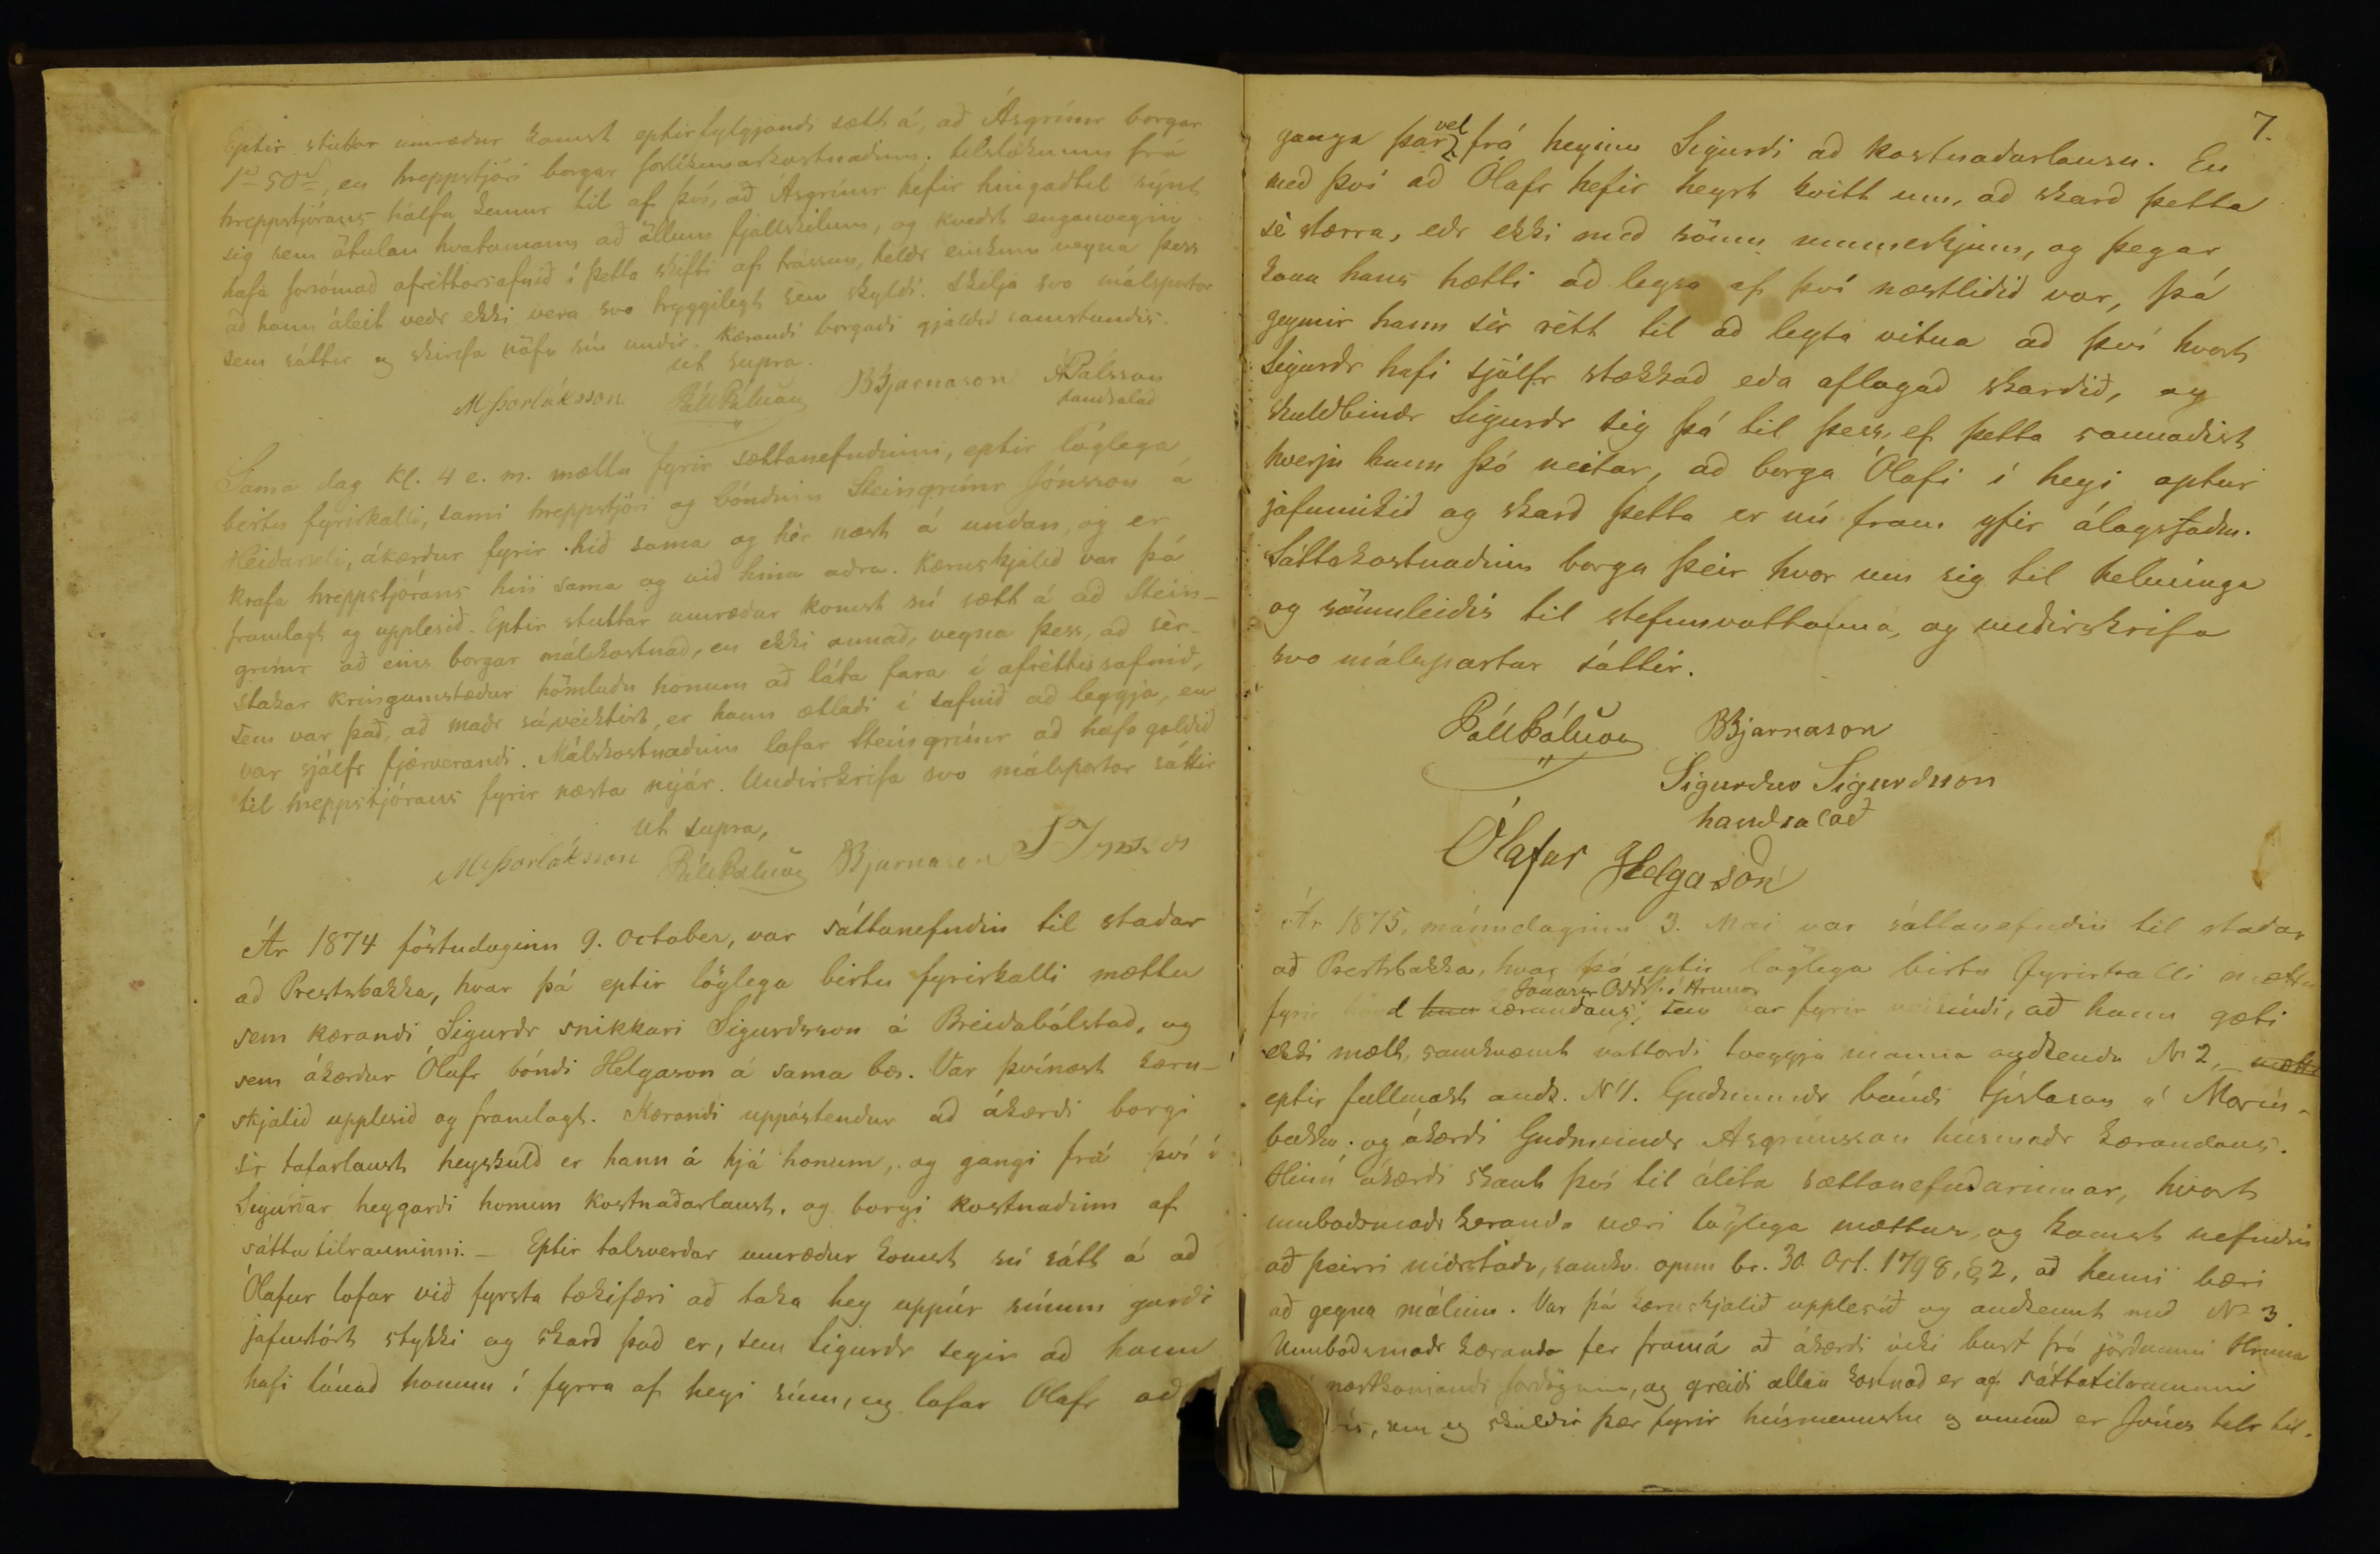 Eptir stuttar umrædur komst eptirfylgjandi sætt á, að Ásgrímr borgar
1rd 50, en hreppstjóri borgar forlíkunarkostnaðinn; tilslökunin frá
hreppstjórans hálfu kemur til af því, að Ásgrímr hefir hingaðtil sýnt
sig sem ötulan hvatamann að öllum fjallskilum, og kveðst enganveginn
hafa forsómað afréttarsafnið í þetta skifti af trássun, heldr einkum vegna þess
að hann áleit veðr ekki vera svo tryggilegt sem skyldi. Skilja svo málspartar
sem sáttir og skrifa nöfn sín undir. Kærandi borgaði gjaldið samstundis.
ut supra.
MÞorláksson PállPálsson BBjarnason ÁPálsson
handsalað
Sama dag kl. 4 e. m. mættu fyrir sættanefndinni, eptir löglega
birtu fyrirkalli, sami hreppstjóri og bóndinn Steingrímr Jónsson á
Heiðarseli, ákærður fyrir hið sama og hér næst á undan, og er
krafa hreppstjórans hin sama og við hina aðra. Kæruskjalið var þá
framlagt og upplesið. Eptir stuttar umræður komst sú sætt á að Stein-
grímr að eins borgar málskostnað, en ekki annað, vegna þess, að sér-
stakar kringumstæður hömluðu honum að láta fara í afréttissafnið,
sem var það, að maðr sá veiktist, er hann ætlaði í safnið að leggja, en
var sjálfr fjærverandi. Málskostnaðinn lofar Steingrímr að hafa goldið
til hreppstjórans fyrir næsta nýár. Undirskrifa svo málspartar sáttir
ut supra,
MÞorláksson PállPálsson BBjarnason S Jonsson
Ár 1874 föstudaginn 9. October, var sáttanefndin til staðar
að Prestsbakka, hvar þá eptir löglega birtu fyrirkalli mættu
sem kærandi Sigurðr snikkari Sigurðsson á Breiðabólstað, og
sem ákærður Ólafr bóndi Helgason á sama bæ. Var þvínæst kæru-
skjalið upplesið og framlagt. Kærandi uppástendur að ákærði borgi
sér tafarlaust heyskuld er hann á hjá honum, og gangi frá því í
Sigurðar heygarði honum kostnaðarlaust, og borgi kostnaðinn af
sáttatilrauninni. – Eptir talsverðar umræður komst sú sátt á að
Ólafur lofar við fyrsta tækifæri að taka hey uppúr sínum garði
jafnstórt stykki og skarð það er, sem Sigurðr segir að hann
hafi lánað honum í fyrra af heyi sínu, og lofar Ólafr að
7.
ganga þar vel frá heyinu Sigurði að kostnaðarlausu. En
með því að Ólafr hefir heyrt kvitt um, að skarð þetta
sé stærra, eðr ekki með sömu ummerkjum, og þegar
kona hans hætti að leysa af því næstliðið vor, þá
geymir hann sér rétt til að leyta vitna að því hvort
Sigurðr hafi sjálfr stækkað eða aflagað skarðið, og
skuldbindr Sigurðr sig þá til þess, ef þetta sannaðist
hverju hann þó neitar, að borga Ólafi í heyi aptur
jafnmikið og skarð þetta er nú fram yfir álagsfaðm.
Sáttakostnaðinn borga þeir hvor um sig til helminga
og sömuleiðis til stefnuvottanna, og undirskrifa
svo málspartar sáttir.
PállPálsson BBjarnason
Sigurður Sigurdsson
handsalað
Ólafur Helgason
Ár 1875, mánudaginn 3. Mai var sáttanefndin til staðar
að Prestsbakka, hvar þá eptir löglega birtu fyrirkalli mættu
Jónasar Oddss. í Hruna
fyrir hönd kærandans, sem bar fyrir veikindi, að hann gæti
ekki mætt, samkvæmt vottorði tveggja manna auðkendu No 2, mætti
eptir fullmakt auðk. No 1. Guðmundr bóndi Gíslason á Maríu-
bakka; og ákærði Guðmundr Asgrímsson húsmaðr kærandans.
Hinn ákærði skaut því til álita sættanefndarinnar, hvort
umboðsmaðr kæranda væri löglega mættur, og komst nefndin
að þeirri niðrstöðu, samkv. opnu br. 30. Oct. 1798, § 2, að henni bæri
að gegna málinu. Var þá kæruskjalið upplesið og auðkennt með No 3.
Umboðsmaðr kæranda fer framá að ákærði víki burt frá jörðunni Hruna
næstkomandi fardögum, og greiði allan kostnað er af sáttatilrauninni
rís, sem og skuldir þær fyrir húsmennsku og annað er Jónas telr til.